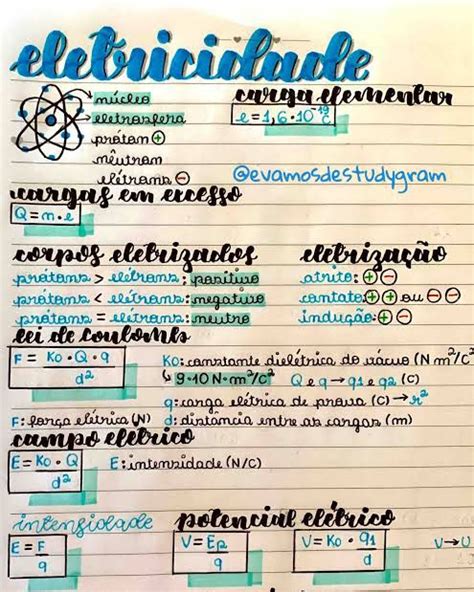 eletricidade
núcleo
eletrosfera
próton +
nêutron
elétrons -
carga elementar
e = 1,6 · 10⁻¹⁹ C
@evamosdestudygram
cargas em excesso
Q = n · e
corpos eletrizados
prótons > elétrons: positivo
prótons < elétrons: negativo
prótons = elétrons: neutro
eletrização
atrito: + -
contato: + + ou - -
indução: + -
lei de coulomb
F = Ko · Q · q / d²
Ko: constante dielétrica do vácuo (N m²/C²)
↳ 9·10 N·m²/C²
Q e q → q1 e q2 (C)
q: carga elétrica de prova (C) → r²
F: força elétrica (N)
d: distância entre as cargas (m)
campo elétrico
E = Ko · Q / d²
E: intensidade (N/C)
intensidade
E = F / q
potencial elétrico
V = Ep / q
V = Ko · q1 / d
V → U